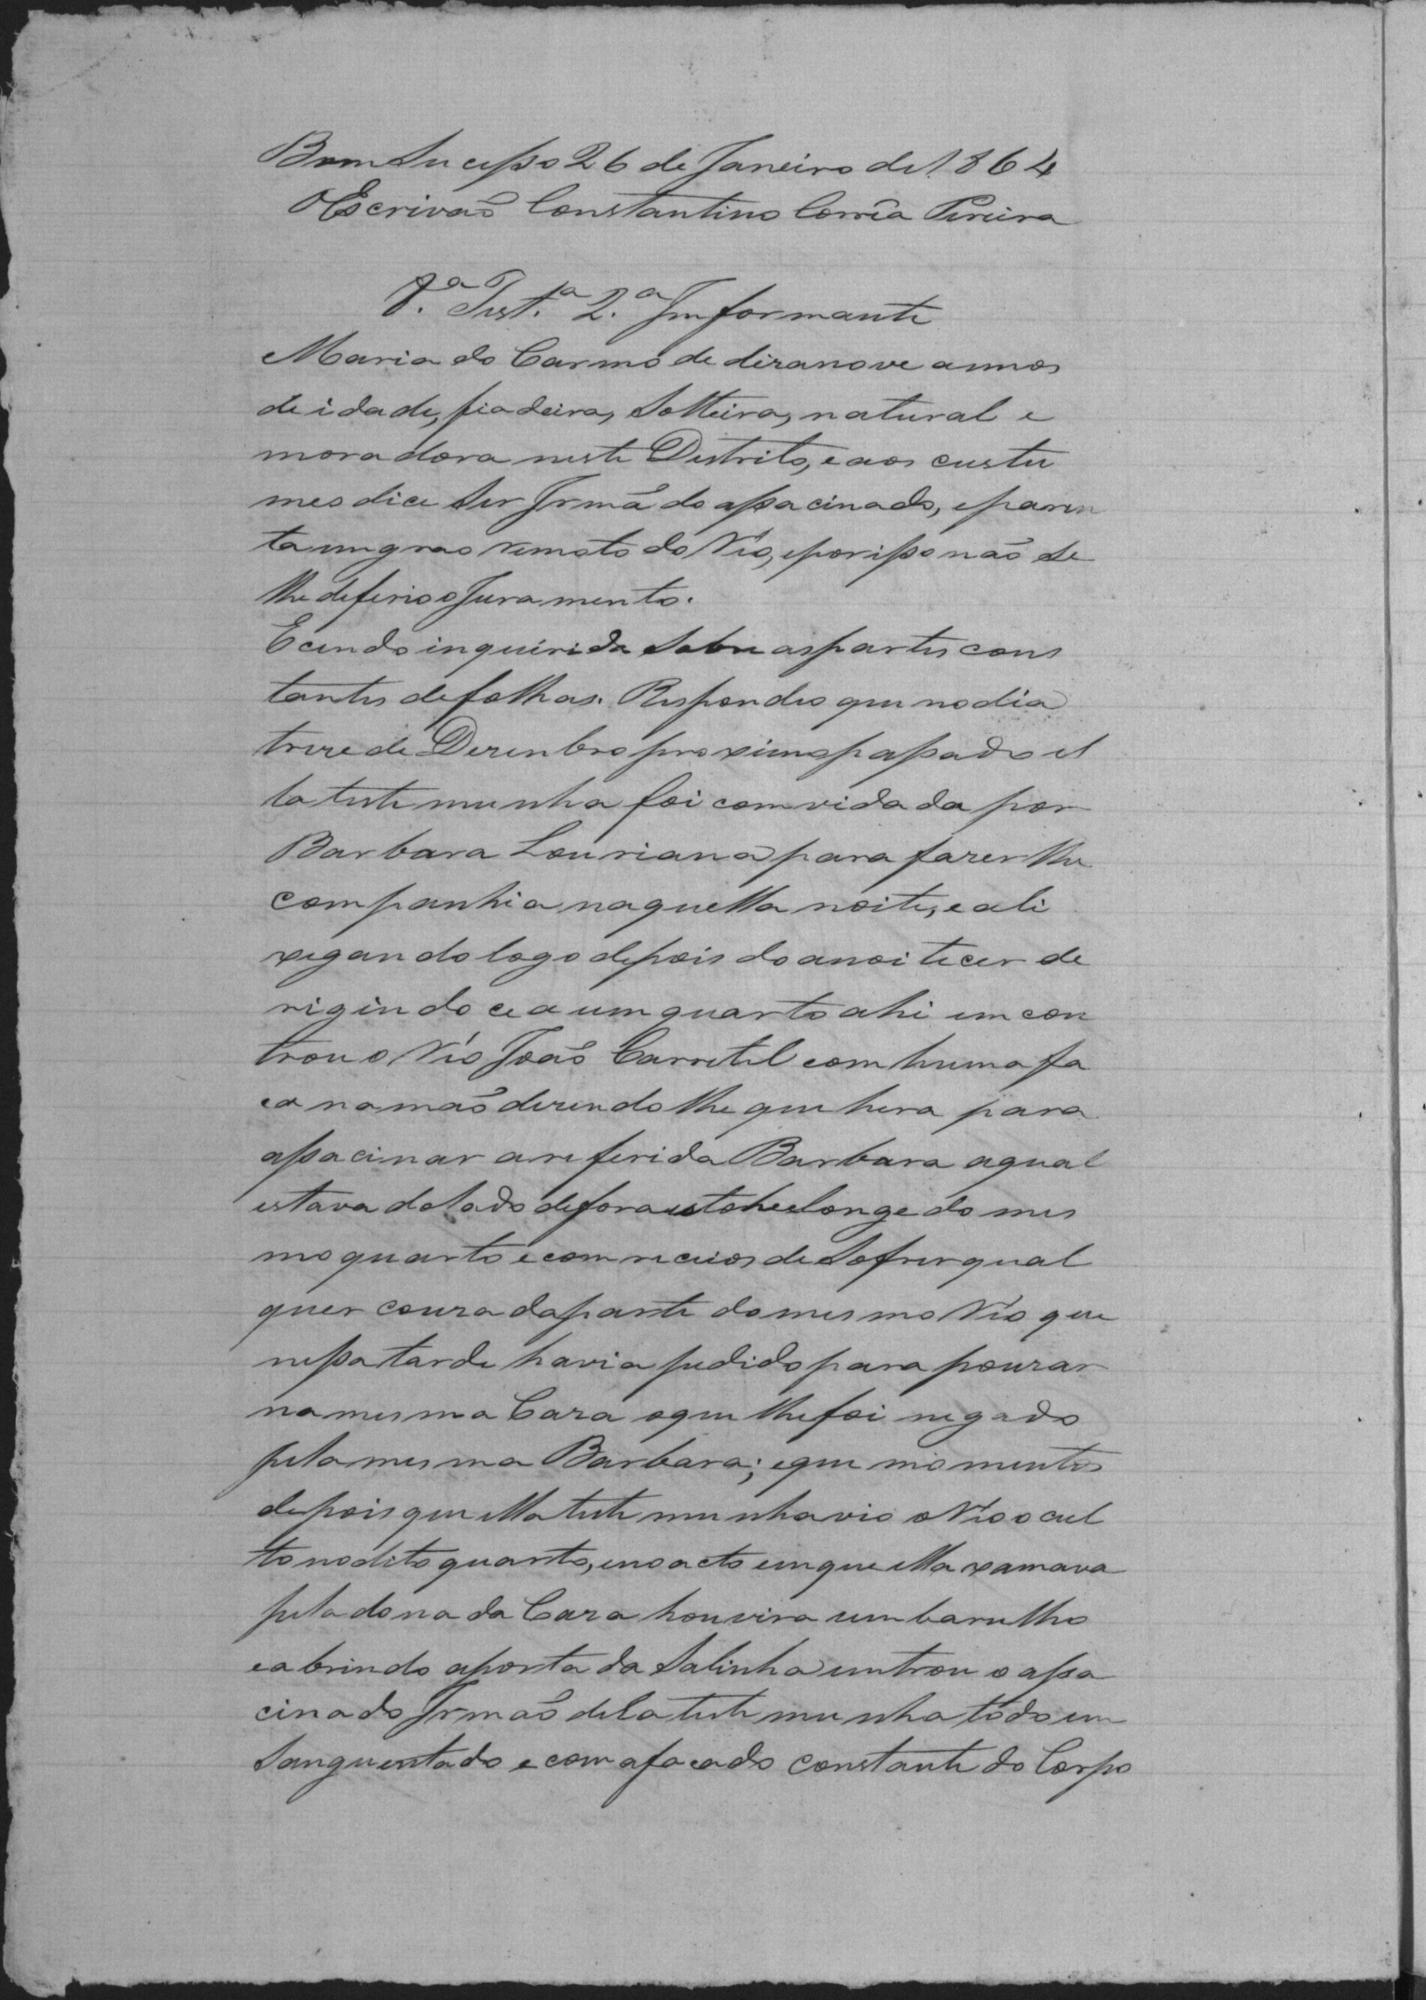 Bom Sucesso 26 de Janeiro de 1864
O Escrivaõ Constantino Corrêa Pereira
8.ª Test.ª 2.ª Imformante
Maria do Carmo de dizanove annos
de idade, fiadeira, Solteira, natural e
moradora neste Destrito, e aos custu
mes dice Ser Irmã do assacinado, e paren
ta em grao remoto do Rio, e por isso não se
lhe deferio o Juramento.
E cendo inquirida Sobre as partes cons
tantes de folhas. Respondeo que no dia
treze de Dezenbro proximo passado el
la testemunha foi comvidada por
Barbara Louriana para fazer lhe
companhia naquella noite, e ali
xegando logo depois do anoitecer de
rigindo ce a um quarto ahi emcon
trou o Rio João Carretel com huma fa
ca na maõ dizendo lhe que hera para
assacinar a referida Barbara a qual
estava do lado de fora longe do mes
mo quarto e com receios de Sofrer qual
quer couza da parte do mesmo Rio que
nessa tarde havia pedido para pouzar
na mesma Caza o que lhe foi negado
pela mesma Barbara; e que momentos
depois que ella testemunha vio o Rio ocul
to no dito quarto, e no acto em que ella xamava
pela dona da Caza houvira um barulho
e abrindo a porta da Salinha entrou o assa
cinado Irmaõ dela testemunha tôdo em
Sanguentado e com a facada constante do Corpo